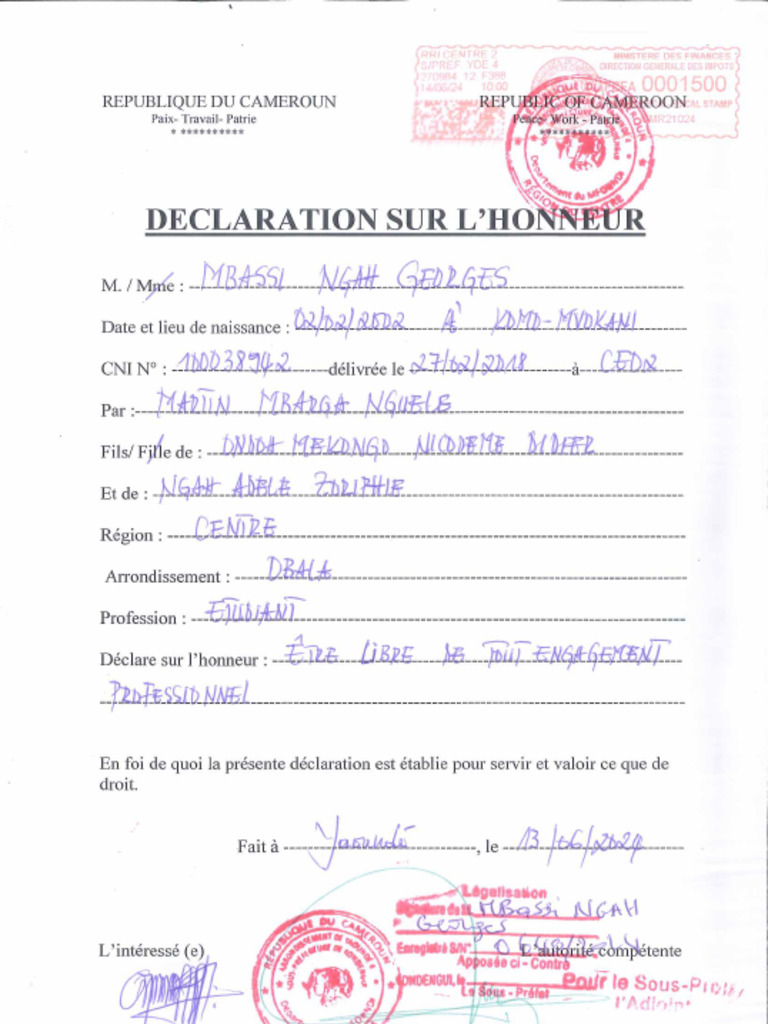 RRI CENTRE 2
S/PREF YDE 4
270984 12 F388
14/06/24 10:00
MINISTERE DES FINANCES
DIRECTION GENERALE DES IMPOTS
0001500
REPUBLIQUE DU CAMEROUN
REPUBLIC OF CAMEROON
Paix- Travail- Patrie
Peace- Work - Patrie
* **********
DECLARATION SUR L'HONNEUR
M. / Mme : MBASSI NGAH GEORGES
Date et lieu de naissance : 02/02/2002 À KOMO-MVOKANI
CNI N° : 100038942 délivrée le 27/02/2018 à CE02
Par : MARTIN MBARGA NGUELE
Fils/ Fille de : ONDOA MEKONGO NICODEME DIDIER
Et de : NGAH ADELE
Région : CENTRE
Arrondissement : OBALA
Profession : ETUDIANT
Déclare sur l'honneur : ÊTRE LIBRE DE TOUT ENGAGEMENT
PROFESSIONNEL
En foi de quoi la présente déclaration est établie pour servir et valoir ce que de
droit.
Fait à Yaoundé, le 13/06/2024
Légalisation
MBassi NGAH
Georges
Enregistré S/N°
L'intéressé (e)
L'autorité compétente
Apposée ci - Contre
Le Sous - Préfet
Pour le Sous-Préfet
l'Adjoint